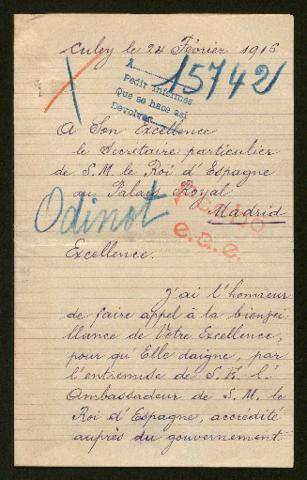 Culey le 24 Février 1916
A
15742
Pedir informes
Que se hace así
Devolver
A Son Excellence
le Secrétaire particulier
de S. M. le Roi d'Espagne
au Palais Royal
Madrid
Odinot
e.a.e.
Excellence.
J'ai l'honneur
de faire appel à la bienvei
llance de Votre Excellence,
pour qu'Elle daigne, par
l'entremise de S. E. l'
Ambassadeur de S. M. le
Roi d'Espagne, accrédité
auprès du gouvernement